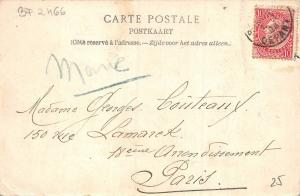 B+ 2466
CARTE POSTALE
POSTKAART
(Côté réservé à l'adresse. — Zijde voor het adres alleen.)
Marie
Madame Georges Couteaux
150 Rue Lamarck
18ème Arrondissement
Paris.
25